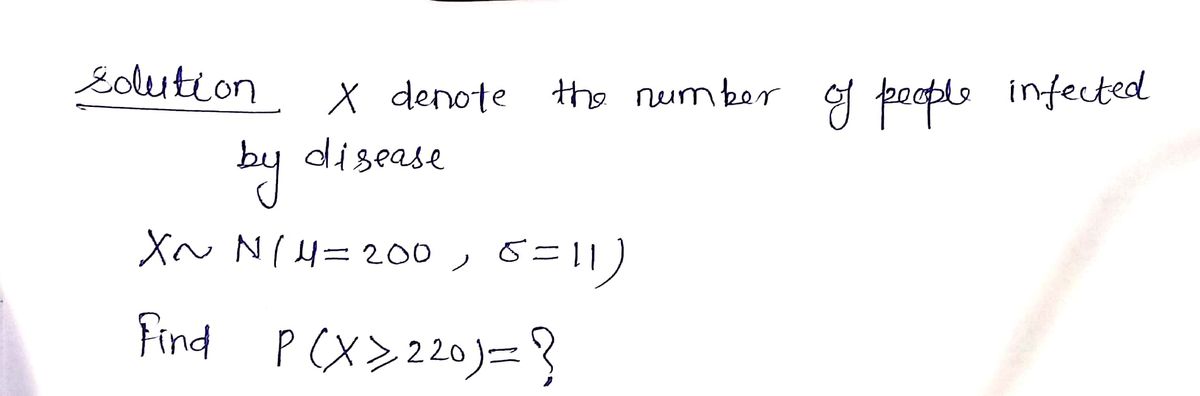 Solution X denote the number of people infected
by disease
X~ N(μ=200, σ=11)
Find P(X⩾220)=?